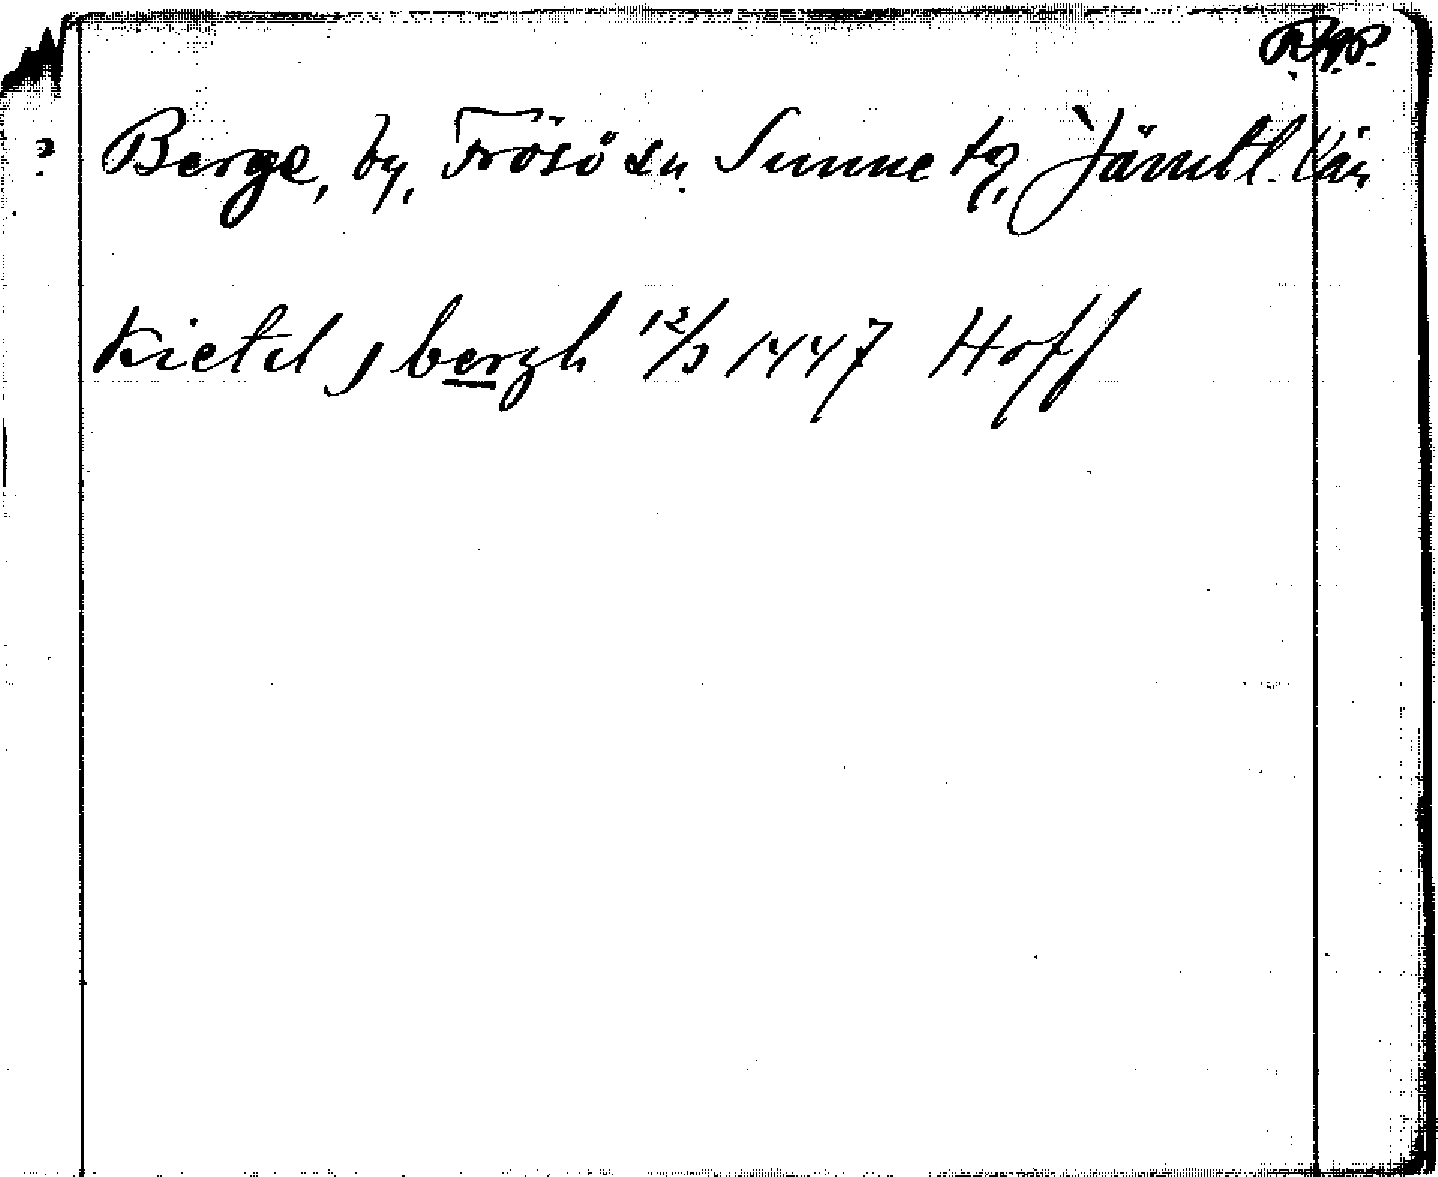 ? Berge, by, Frösö sn. Sunne tg, Jämtl. län
Kietil j bergh 12/3 1447 Hoff